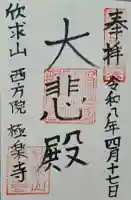 奉拝 令和八年四月十七日
大悲殿
欣求山 西方院 極楽寺